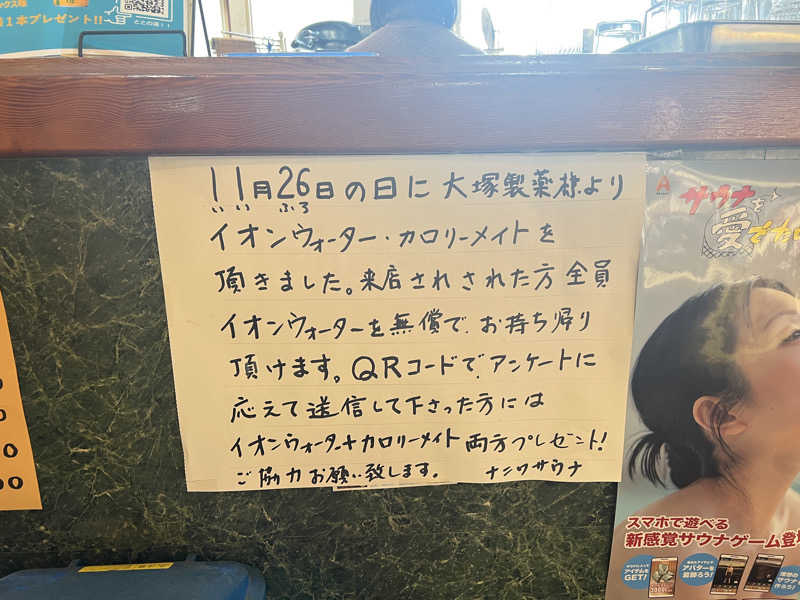 1本プレゼント!!
11月26日の日に大塚製薬様より
いい ふろ
イオンウォーター・カロリーメイトを
頂きました。来店されされた方全員
イオンウォーターを無償で、お持ち帰り
頂けます。QRコードで、アンケートに
応えて送信して下さった方には
イオンウォーター+カロリーメイト両方プレゼント!
ご協力お願い致します。 ナニワサウナ
サウナを
愛でたい
スマホで遊べる
新感覚サウナゲーム登場
アイテムを
GET!
アバターを
装飾ろう!
サウナ
作ろう!